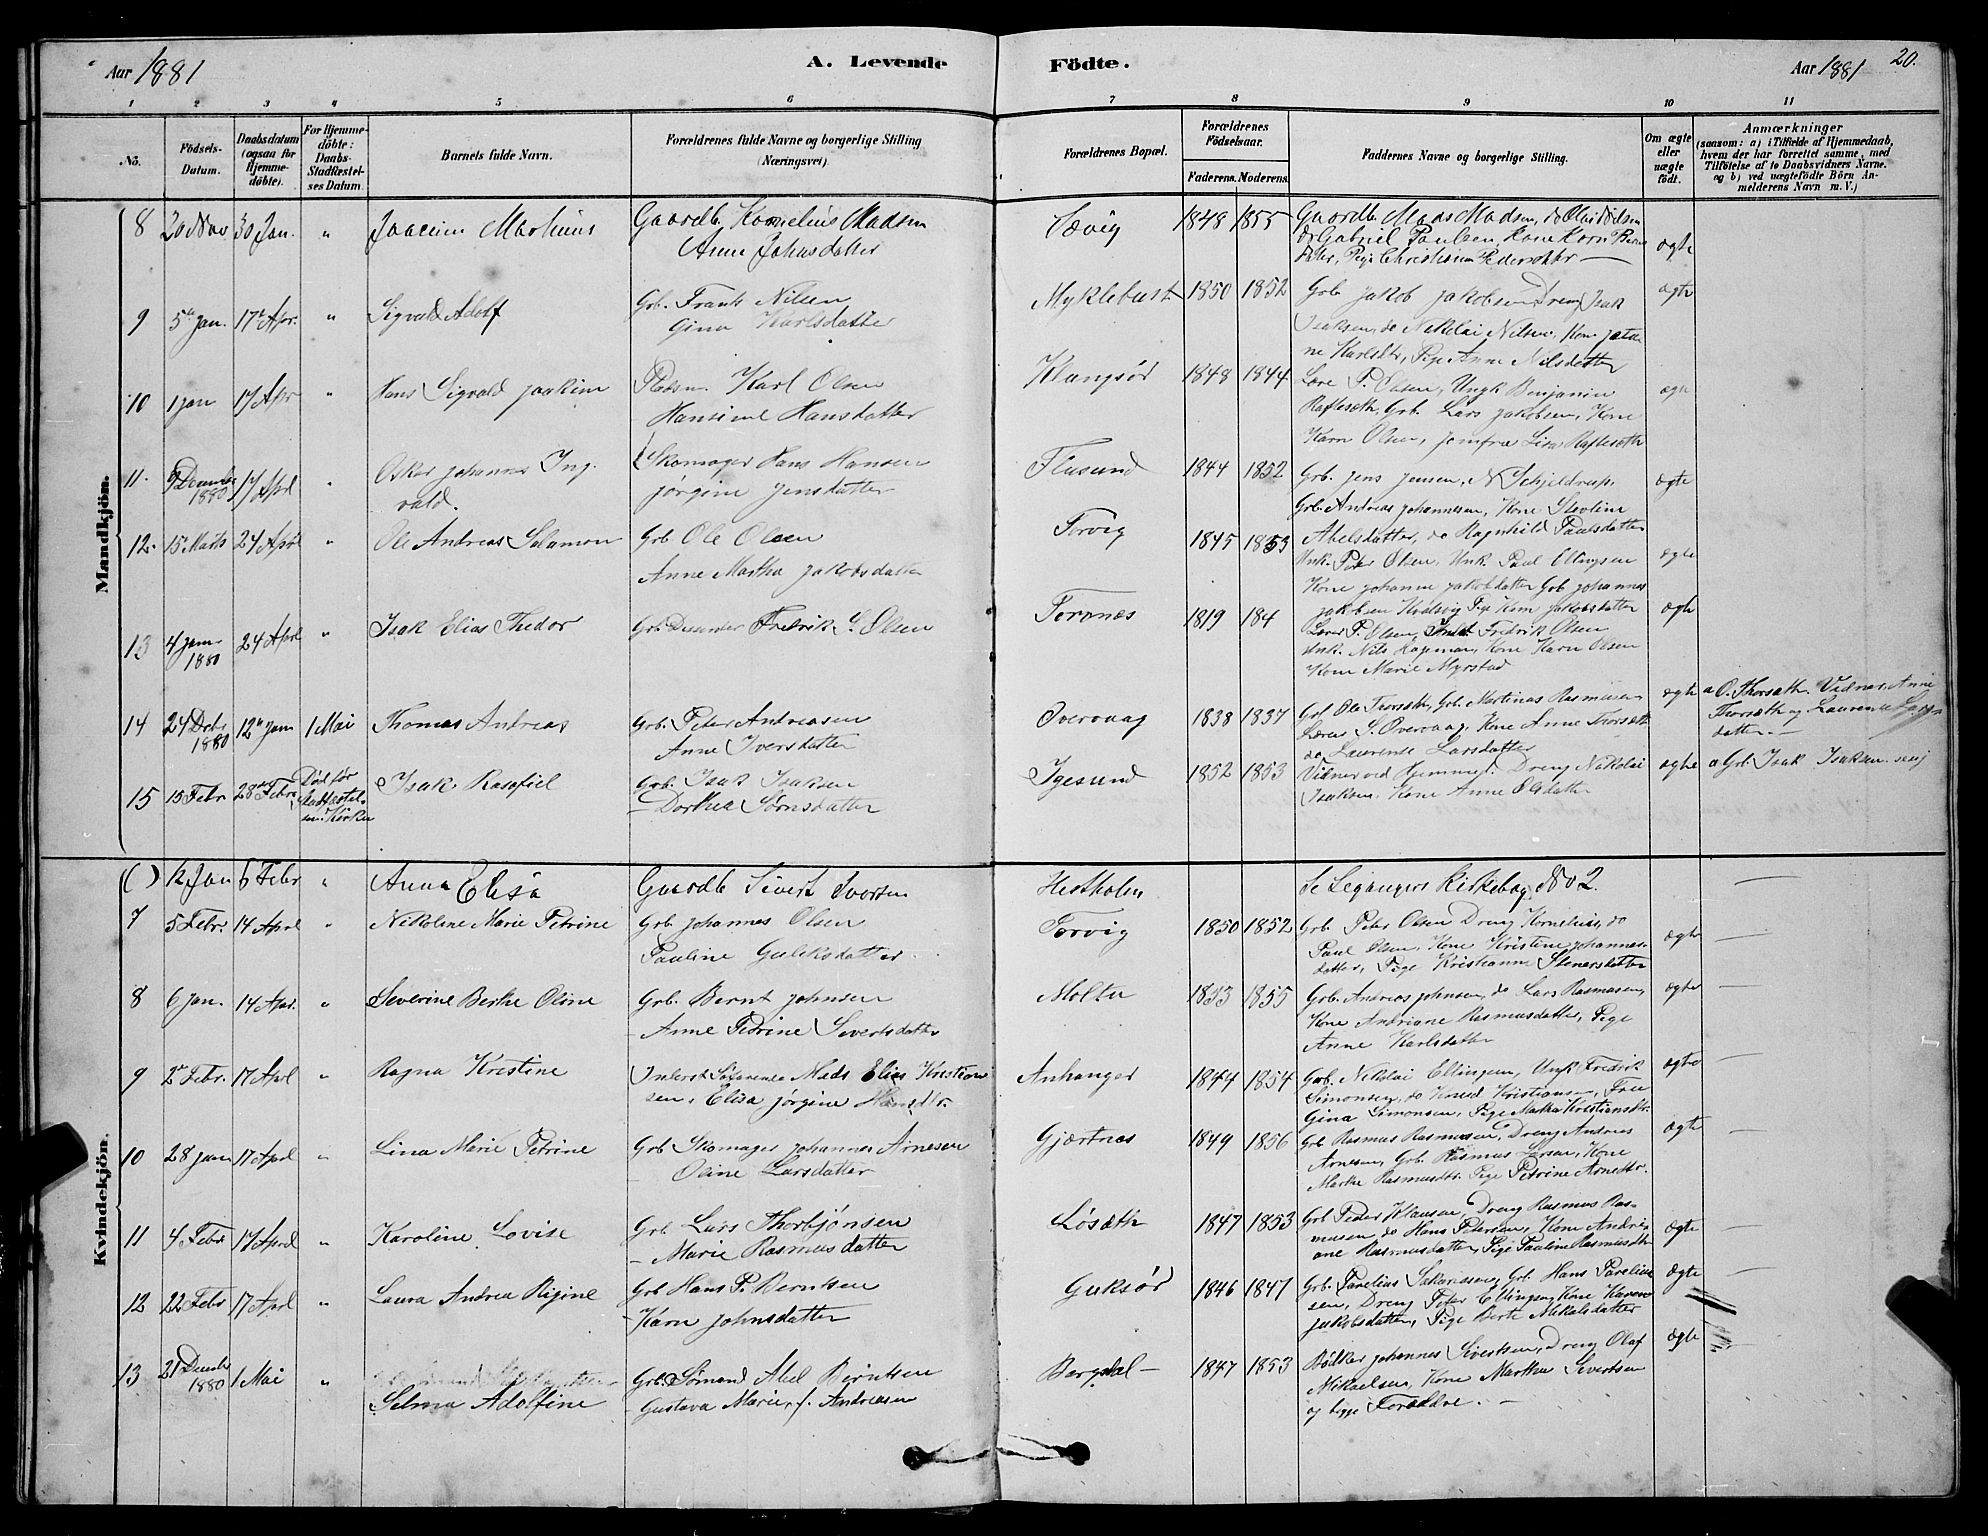 Aar 1881
A. Levende Födte.
Aar 1881
20.
1 2 3 4 5 6 7 8 9 10 11
No.
Födsels-Datum.
Daabsdatum (ogsaa for Hjemme-döbte).
For Hjemme-döbte: Daabs-Stadfæstel-ses Datum.
Barnets fulde Navn.
Forældrenes fulde Navne og borgerlige Stilling (Næringsvei).
Forældrenes Bopæl.
Forældrenes Födselsaar.
Faderens. Moderens.
Faddernes Navne og borgerlige Stilling.
Om ægte eller uægte födt.
Anmærkninger
(saasom: a) i Tilfælde af Hjemmedaab, hvem der har forrettet samme, med Tilföielse af to Daabsvidners Navne. og b) ved uægtefödte Börn An-melderens Navn m. V.)
Mandkjön.
8 20 Nov 30 Jan. " Joacim Martinus Gaardb. Kornelius Madsen Sævig 1848 1855 Gaardb. Mads Madsen,
Anne Johnsdatter do Gabriel Paulsen, Kone Karn ægte
datter, Pige Christiane Pedersdtr —
9 5te Jan. 17de Apr. " Sigvald Adolf Grb. Frants Nilsen Myklebust 1850 1852 Grb. Jakob Jakobsen Dreng Isak ægte
Gina Karlsdatter Isaksen, do Nikolai Nilsen, Kone
ne Karlsdtr, Pige Anne Nilsdatter
10 1 Jan 17 Apr " Hans Sigvald Joakim Pladsm. Karl Olsen Klungsör 1848 1844 P. Olsen, Ungk. Benjamin ægte
Hansine Hansdatter Raftesæth, Grb. Lars Jakobsen, Kone
Karn Olsen, Jomfru Lisa Raftesæth
11. 9 Decembr 1880 17 April " Oskar Johannes Ing-vald. Skomager Hans Hansen Flusund 1844 1852 Grb. Jens Jensen, N. Schjeldrup, ægte
Jørgine Jensdatter Grb. Andreas Johannesen, Kone
Abelsdatter, do Ragnhild Paulsdatter
12. 15 Marts 24 April " Ole Andreas Salamon Grb. Ole Olsen Torvig 1845 1853 Unk. Peter Olsen, Unk. Paul Ellingsen ægte
Anne Martha Jakobsdatter Kone Johanne Jakobsdatter Grb. Johannes
Jakobsen Kvalsvig Pige Jakobsdatter
13 4 Jan 1880 24 April " Isak Elias Thedor Grb. Fredrik C. Olsen Torvnæs 1819 184 P. Olsen, Fredrik Olsen ægte
Unk. Nils Hageman, Kone Karn Olsen
Kone Marie Myrstad
14 24 Decbr 1880 12te Jan 1 Mai Thomas Andreas Grb. Peter Andreasen Overvaag 1838 1837 Grb Ole Thorsæth, Grb. Martinus Rasmusen ægte a O. Thorsæth. Vidner Anne
Anne Iversdatter S. Overvaag, Kone Anne Thorsæth Thorsæth og Laurense
do Laurense Larsdatter datter. —
15 15 Febr 28de Febr Död för Stadfæstel-sen i Kirken Isak Rasafiel Grb. Isak Isaksen Igesund 1852 1853 Vidner ved Hjemmed. Dreng Nikolai ægte a Grb. Isak Isaksen
— Dorthea Sörnsdatter Isaksen, Kone Anne Olsdatter
Kvindekjön.
( ) 12 Jan 6 Febr " Anna Elisa Gaardb. Sivert Iversen Hestholm Se Leganger Kirkebog No 2. —
7 5 Febr. 14 April " Nikoline Marie Petrine Grb. Johannes Olsen Torvig 1850 1852 Grb. Peter Olsen Dreng Kornelius, do ægte —
Pauline Guliksdatter Paul Olsen, Kone Kristine Johannes-
datter, Pige Kristianne Stenersdatter
8 6 Jan. 14 Apr. " Severine Berthe Oline Grb. Bernt Johnsen Moltu 1853 1855 Grb. Andreas Johnsen, do Lars Rasmusen, ægte —
— Anne Petrine Sivertsdatter Kone Andriane Rasmusdatter, Pige
Anne Karlsdatter
9 2 Febr. 17 Apl " Ragna Kristine Inderst Söfarende Mads Elias Kristian Anhanger 1844 1854 Grb. Nikolai Ellingsen, Unk. Fredrik ægte —
sen, Elisa Jørgine Hansdtr. Simonsen, do Knud Kristiansen, Frue
Gina Simonsen, Pige Matha Kristiansdtr.
10 28 Jan 17 Aprl " Lina Marie Petrine Grb. Skomager Johannes Arnesen Gjærtnes 1849 1856 Grb. Rasmus Rasmusen, Dreng Andreas ægte —
— Oline Larsdatter Arnesen, Grb. Rasmus Larsen, Kone
Marthe Rasmusdtr. Pige Petrine Arnedtr.
11 4 Febr 17 April " Karoline Lovise Grb. Lars Thorbjönsen Løsæth 1847 1853 Grb. Peder Klausen, Dreng Rasmus Ras- ægte —
— Marie Rasmusdatter musen do Hans Petersen, Kone Andri-
ane Rasmusdatter, Pige Pauline Rasmusdtr
12 22 Febr 17 Aprl " Laura Andrea Regine Grb Hans P. Berntsen Guksør 1846 1847 Grb. Parelius Sakariassen, Grb. Hans Parelius ægte —
— Karn Johnsdatter sen, Dreng Peter Ellingsen, Kone Karen
Jakobsdatter, Pige Berte Mikalsdatter
13 21 Decbr 1880 1 Mai " Selma Adolfine Grb. Sömand Abel Berntsen Bergdal — 1847 1853 Bødker Johannes Sivertsen, Dreng Olaf ægte —
— Gustava Marie, f. Andreasen Mikaelsen, Kone Martha Sivertsen
og begge Forældre. —